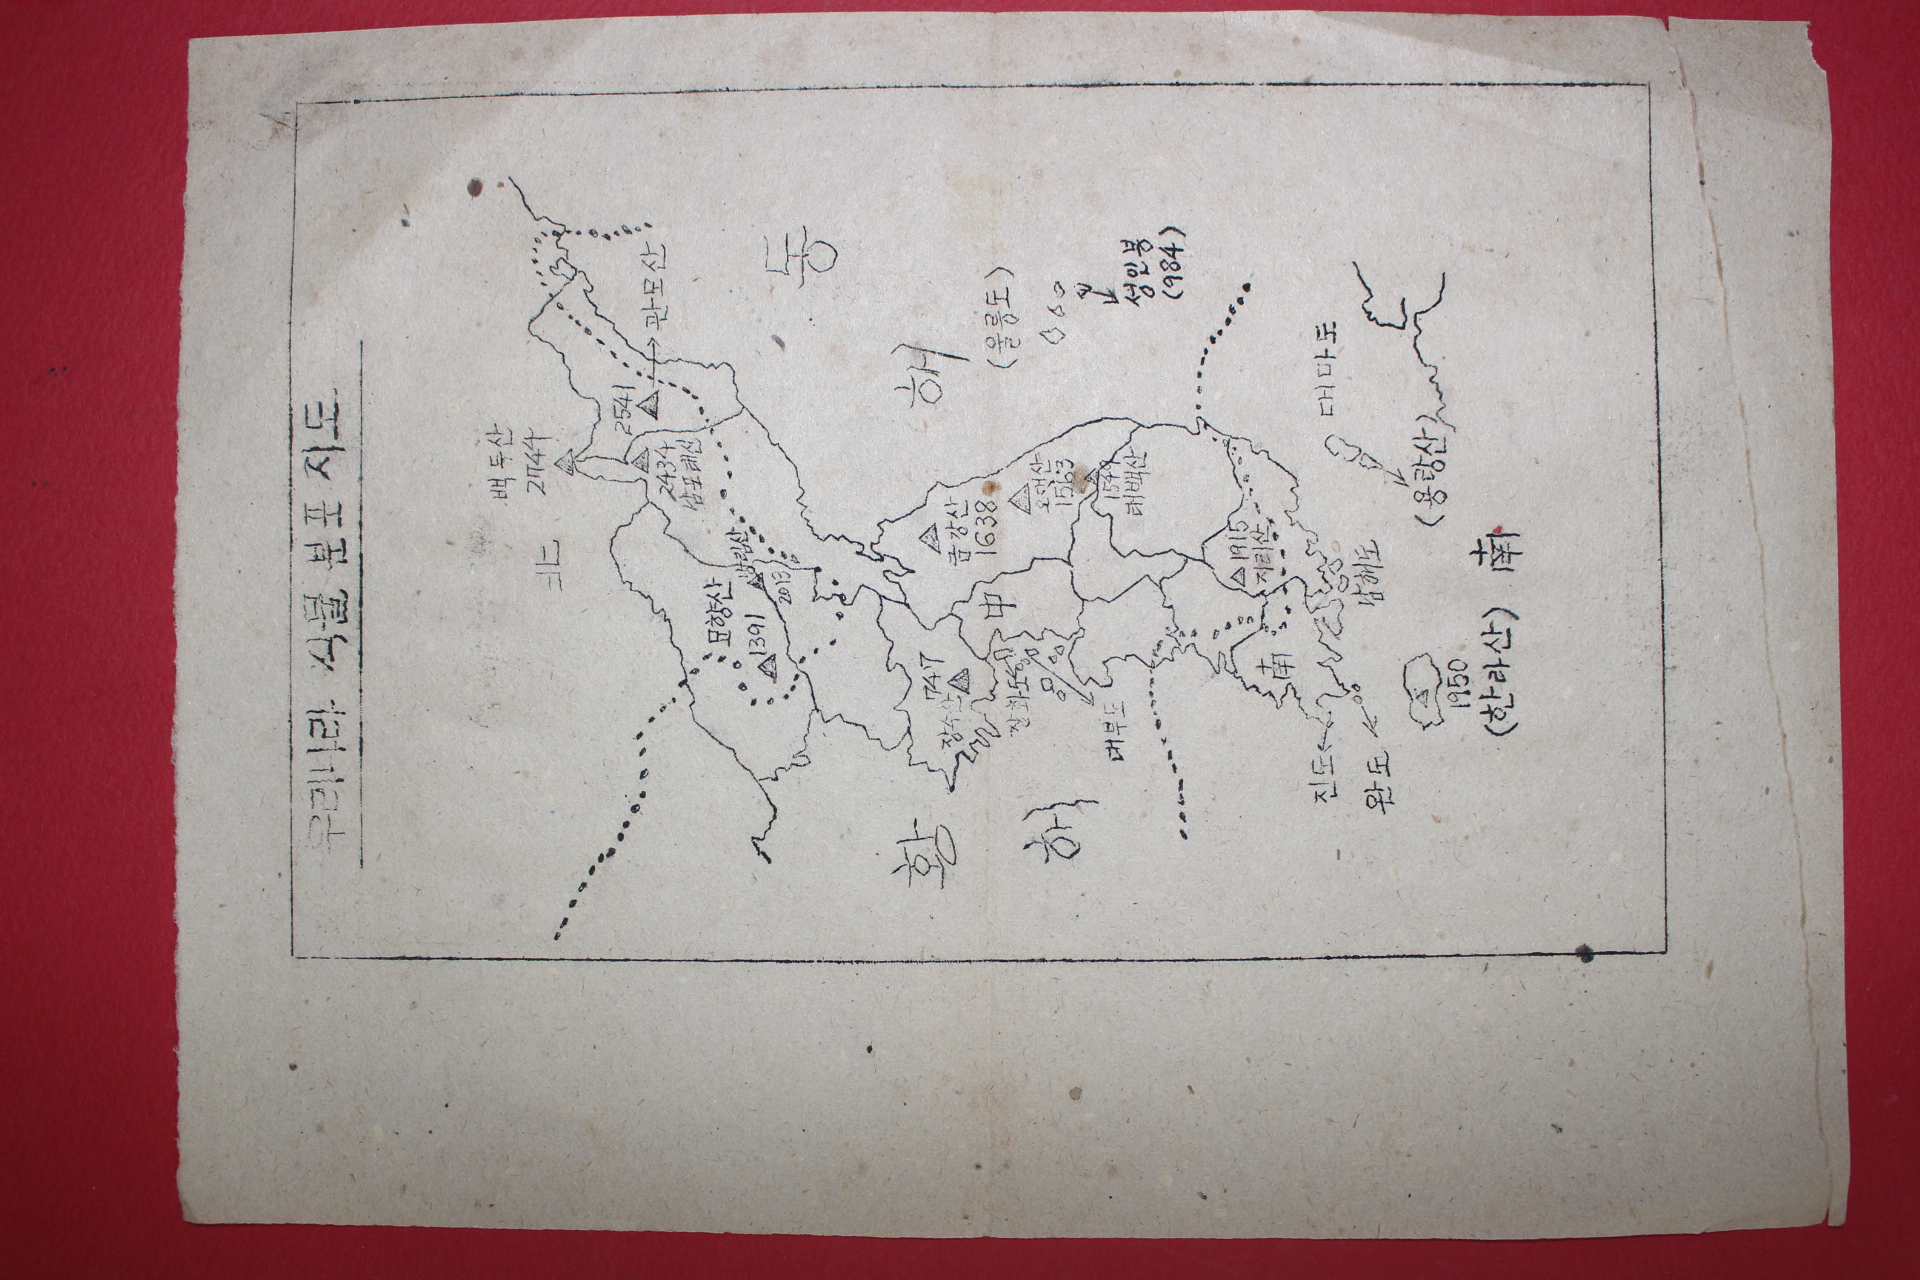 우리나라 식물분포 지도
백두산
2744
北
2541
관모산
2434
남포태산
묘향산
1391
낭림산
2013
동
해
(울릉도)
성인봉
(984)
금강산
1638
오대산
1563
1549
태백산
中
747
장수산
강화도
대부도
황
해
1915
지리산
南
남해도
대마도
(용랑산)
진도
완도
1950
(한라산)
南